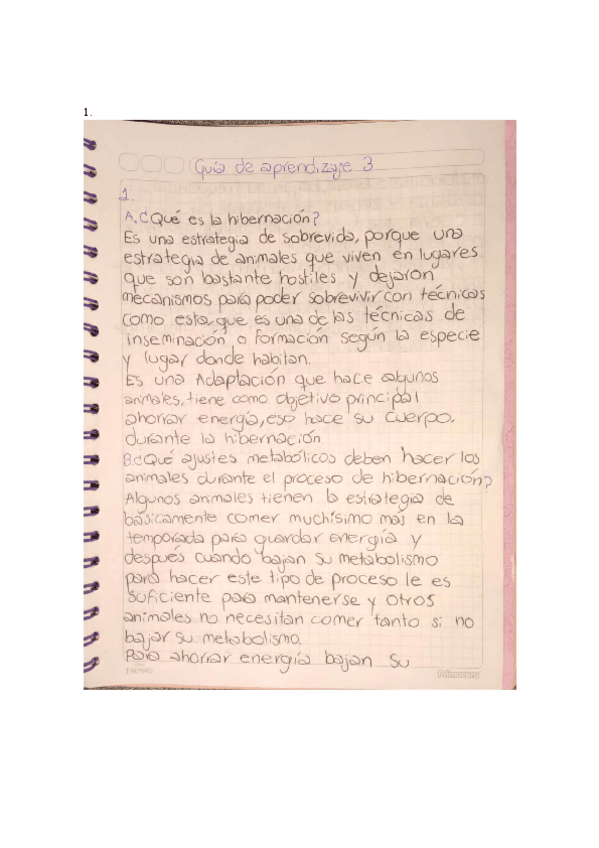 1.
Guía de aprendizaje 3
1.
A.¿Qué es la hibernación?
Es una estrategia de sobrevida, porque una
estrategia de animales que viven en lugares
que son bastante hostiles y dejarón
mecanismos para poder sobrevivir con técnicas
como esta, que es una de las técnicas de
inseminación o formación según la especie
y lugar donde habitan.
Es una Adaptación que hace algunos
animales, tiene como objetivo principal
ahorrar energía, eso hace su cuerpo.
durante la hibernación
B.¿Qué ajustes metabólicos deben hacer los
animales durante el proceso de hibernación?
Algunos animales tienen la estrategia de
básicamente comer muchísimo mas en la
temporada para guardar energía y
después cuando bajan su metabolismo
para hacer este tipo de proceso le es
suficiente para mantenerse y otros
animales no necesitan comer tanto si no
bajar su metabolismo.
Para ahorrar energía bajan su
Primavera